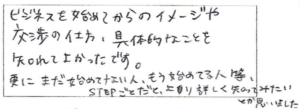 ビジネスを始めてからのイメージや
交渉の仕方、具体的なことを
知れてよかったです。
更にまだ始めてない人、もう始めてる人等、
STEPごとだと、より詳しく知ってみたい
とか思いました